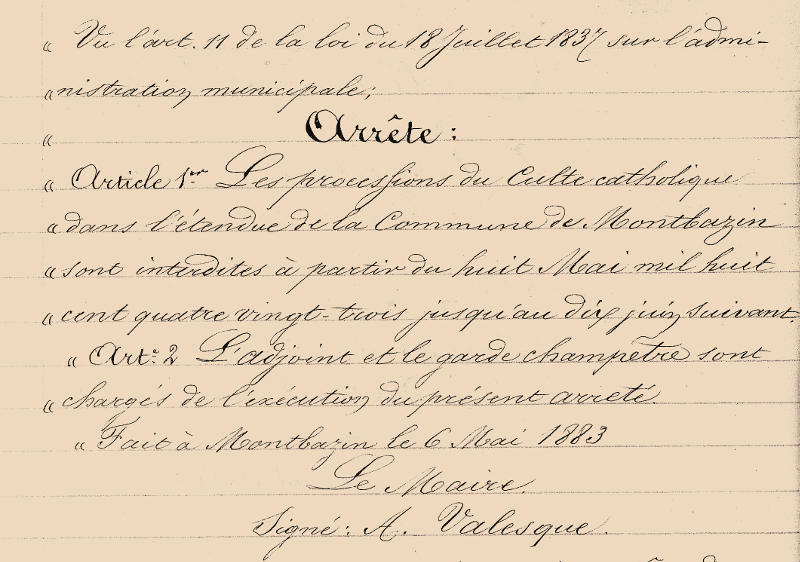 « Vu l'art. 11 de la loi du 18 Juillet 1837 sur l'admi-
« nistration municipale;
« Arrête :
« Article 1er Les processions du Culte catholique
« dans l'étendue de la Commune de Montbazin
« sont interdites à partir du huit Mai mil huit
« cent quatre vingt-trois jusqu'au dix juin suivant.
« Art. 2 L'adjoint et le garde champêtre sont
« chargés de l'exécution du présent arrêté
« Fait à Montbazin le 6 Mai 1883
Le Maire.
Signé: A. Valesque.